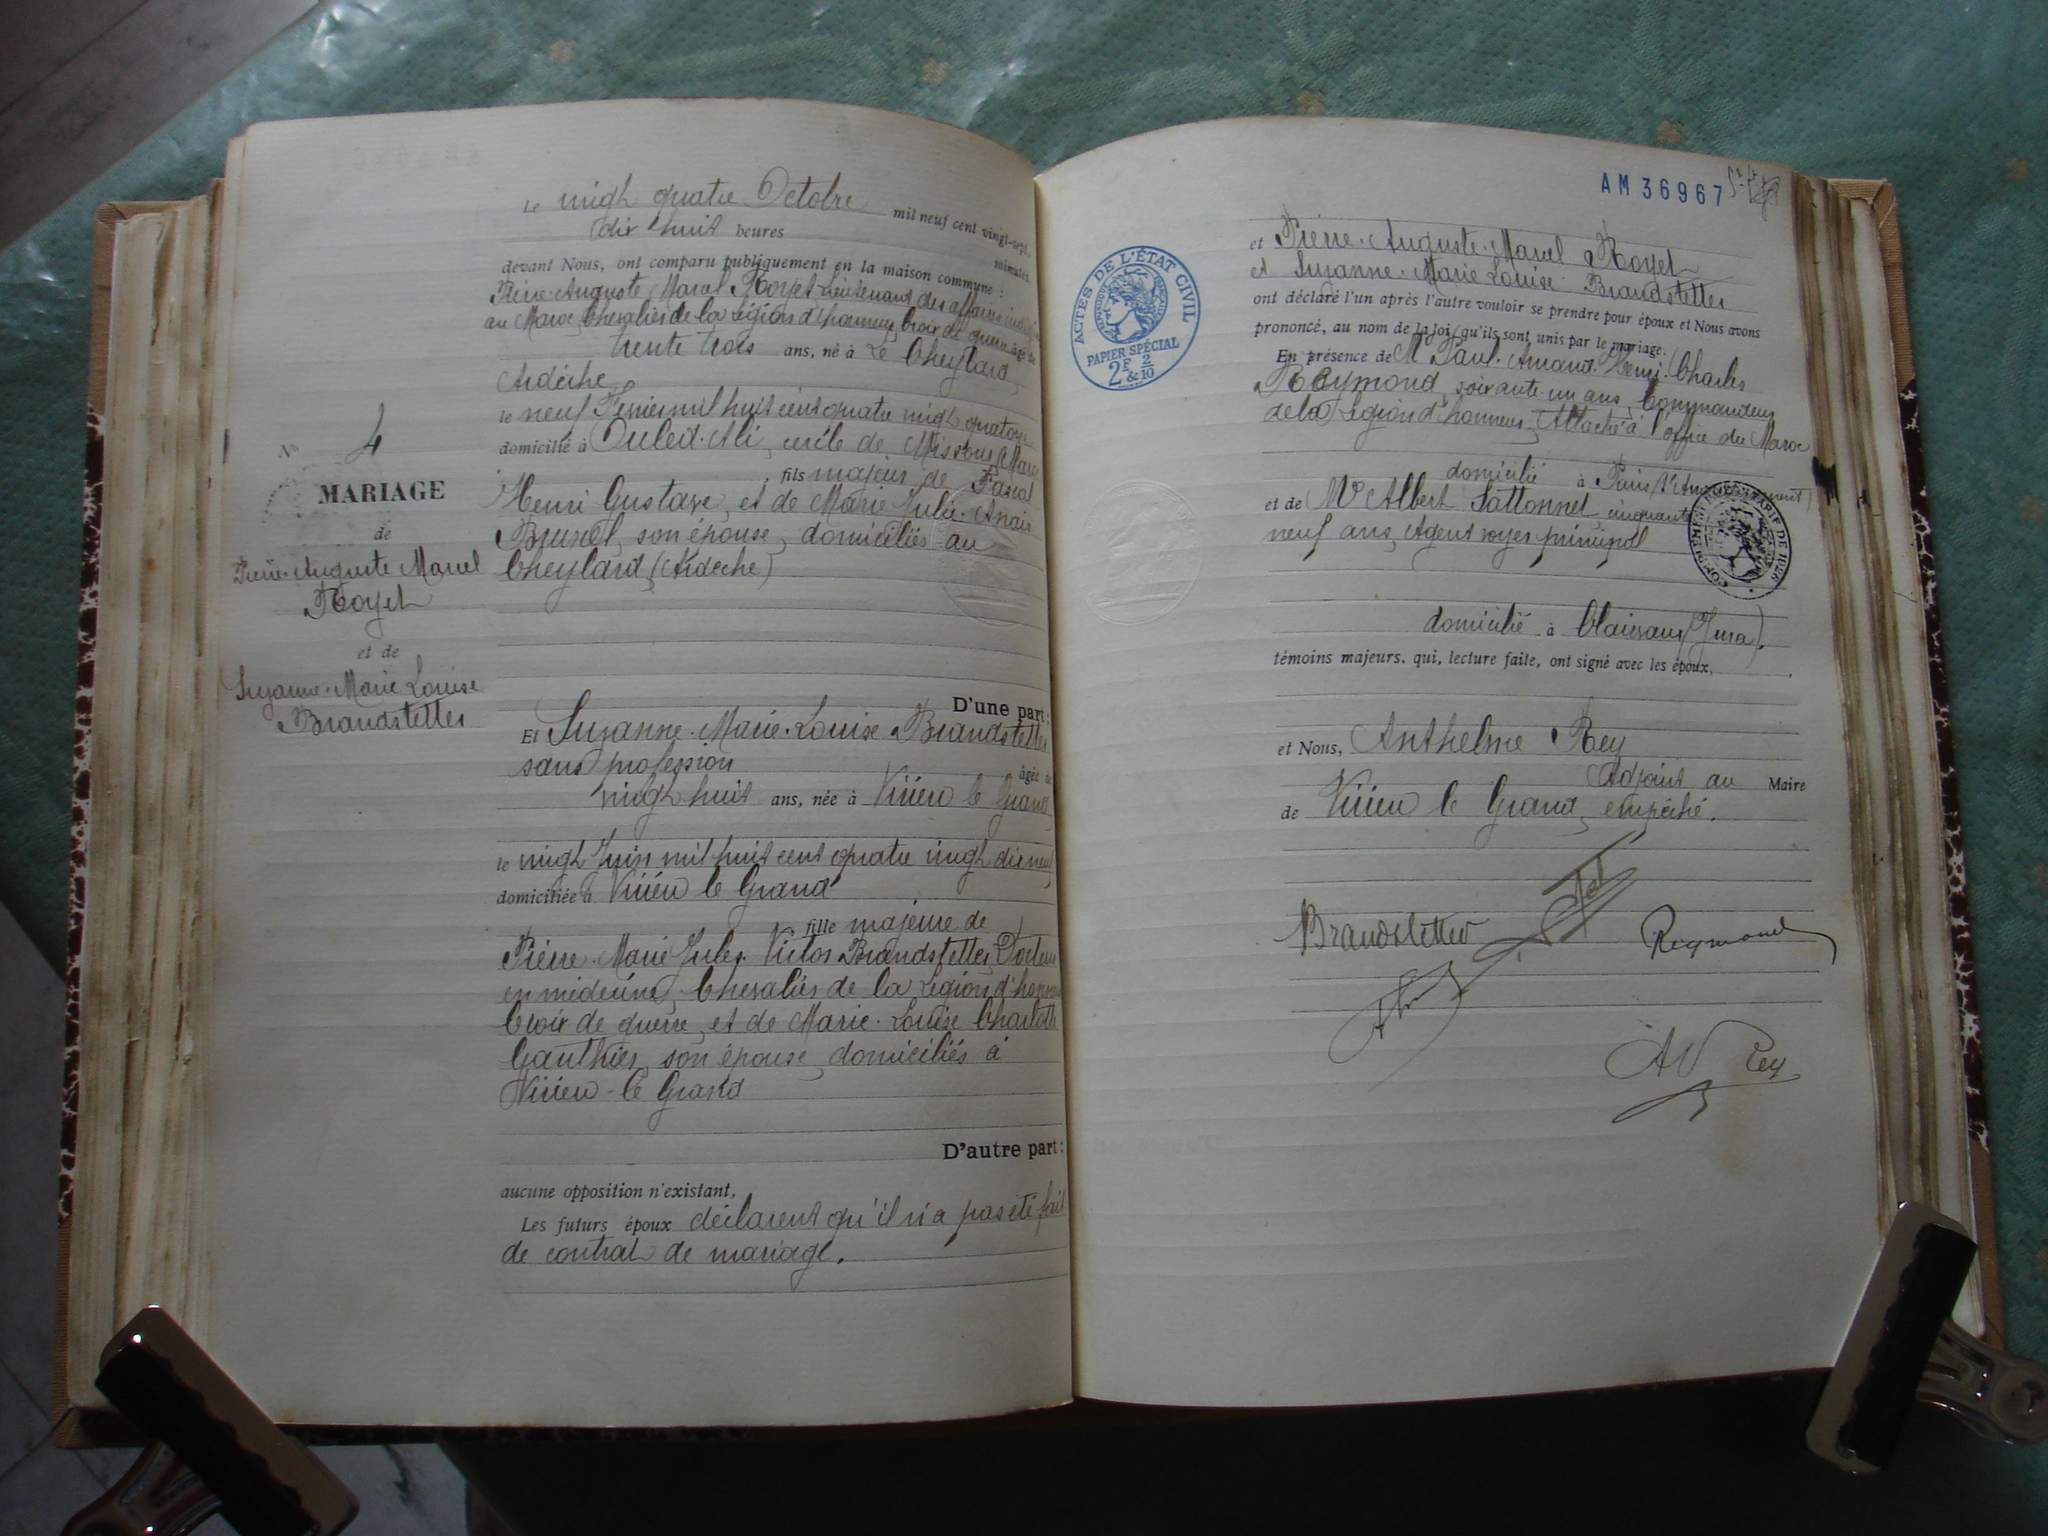 Le vingt quatre Octobre mil neuf cent vingt-sept,
dix huit heures minutes,
devant Nous, ont comparu publiquement en la maison commune :
Pierre-Auguste Marcel Royet Lieutenant des affaires
au Maroc, Chevalier de la Légion d'honneur, Croix de guerre âgé de
trente trois ans, né à Le Cheylard
Ardèche
le neuf Février mil huit cent quatre vingt quatorze
domicilié à Ouled-Ali, cercle de Missour, Maroc
fils majeur de Pascal
Henri Gustave, et de Marie Julie Anaïs
Brunel, son épouse, domiciliés au
Cheylard (Ardèche)
N° 4
MARIAGE
de
Pierre-Auguste Marcel
Royet
et de
Suzanne-Marie Louise
Brandstetter
D'une part :
Et Suzanne-Marie-Louise Brandstetter
sans profession âgée de
vingt huit ans, née à Virieu le Grand
le vingt Juin mil huit cent quatre vingt dix neuf
domiciliée à Virieu le Grand
fille majeure de
Pierre-Marie Jules Victor Brandstetter, Docteur
en médecine, Chevalier de la Légion d'honneur
Croix de guerre, et de Marie-Louise Charlotte
Gauthier, son épouse, domiciliés à
Virieu-le Grand
D'autre part :
aucune opposition n'existant,
Les futurs époux déclarent qu'il n'a pas été fait
de contrat de mariage.
AM36967
ACTES DE L'ÉTAT CIVIL
RÉPUBLIQUE FRANÇAISE
PAPIER SPÉCIAL
2F & 2/10
et Pierre-Auguste-Marcel Royet
et Suzanne-Marie Louise Brandstetter
ont déclaré l'un après l'autre vouloir se prendre pour époux et Nous avons
prononcé, au nom de la loi, qu'ils sont unis par le mariage.
En présence de M Paul-Amand-Henri-Charles
Reymond, soixante un ans, Commandeur
de la Légion d'honneur, Attaché à l'office du Maroc
domicilié à Paris
et de Mr Albert Sattonnet cinquante
neuf ans, Agent voyer principal
domicilié à Clairvaux (Jura).
témoins majeurs, qui, lecture faite, ont signé avec les époux,
et Nous, Anthelme Rey
Adjoint au Maire
de Virieu le Grand, empêché.
Brandstetter
Reymond
AV Rey